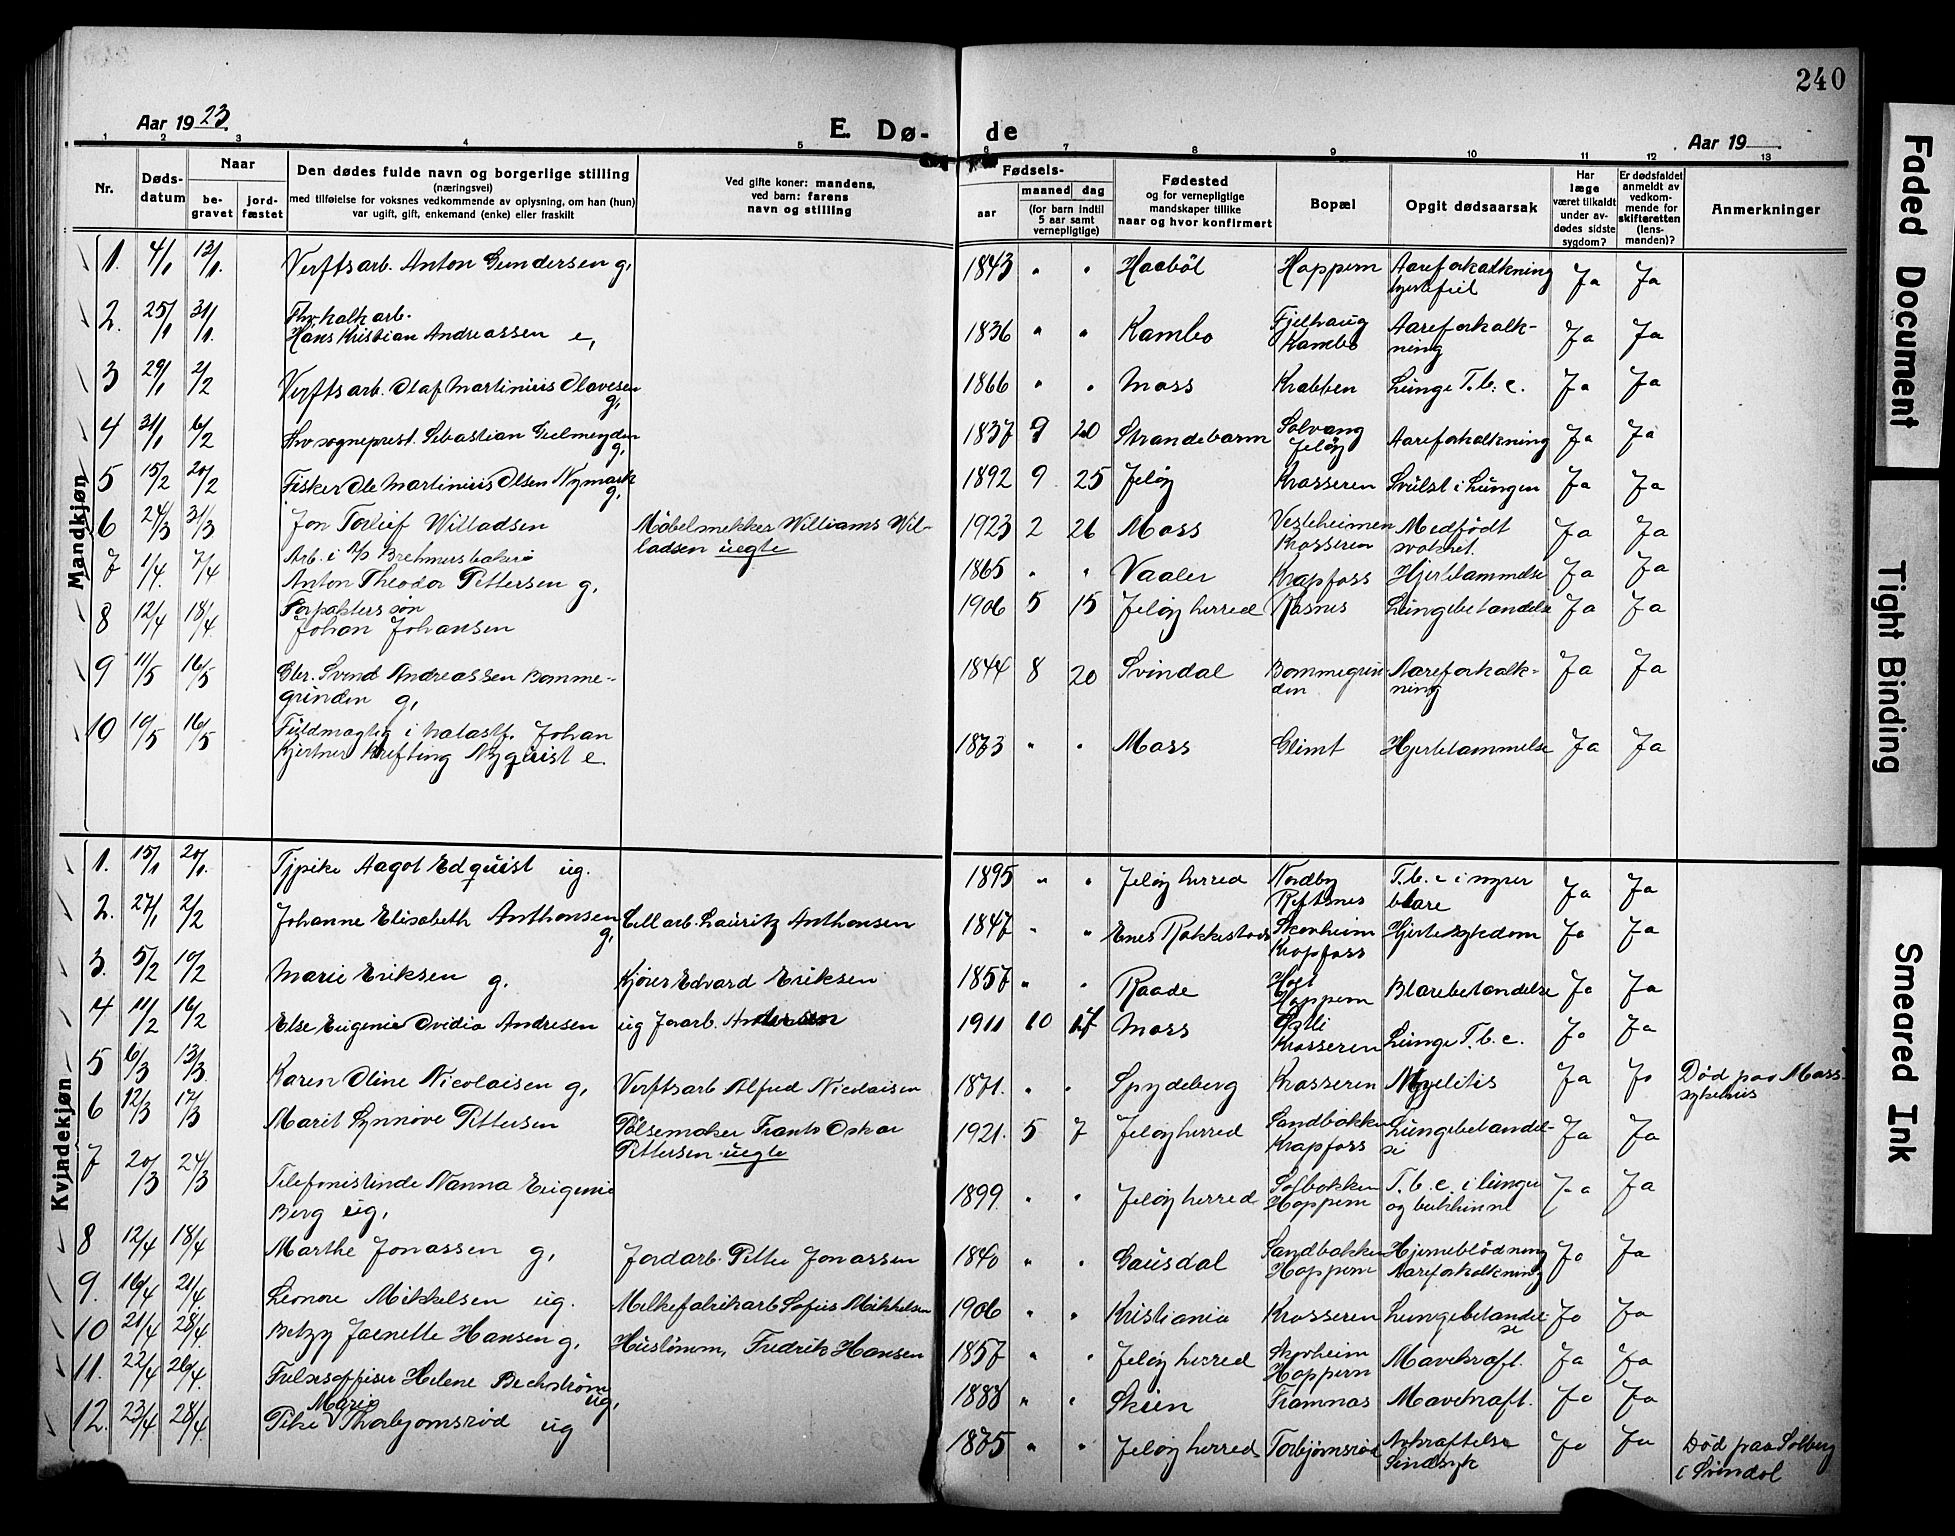 240
Aar 1923.
E. Dø-
de
Aar 19
1 2 3 4 5 6 7 8 9 10 11 12 13
Nr.
Døds-
datum
Naar
be-
gravet
jord-
fæstet
Den dødes fulde navn og borgerlige stilling
(næringsvei)
med tilføielse for voksnes vedkommende av oplysning, om han (hun)
var ugift, gift, enkemand (enke) eller fraskilt
Ved gifte koner: mandens,
ved barn: farens
navn og stilling
Fødsels-
aar
maaned dag
(for barn indtil
5 aar samt
vernepligtige)
Fødested
og for vernepligtige
mandskaper tillike
naar og hvor konfirmert
Bopæl
Opgit dødsaarsak
Har
læge
været tilkaldt
under av-
dødes sidste
sygdom?
Er dødsfaldet
anmeldt av
vedkom-
mende for
skifteretten
(lens-
manden)?
Anmerkninger
Mandkjøn
1. 4/1 12/1. Verftsarb. Anton Gundersen g, 1843 " " Haabøl Hoppern Aareforkalkning Ja Ja
hjertefeil
2. 25/1 31/1. Hans Kristian Andreassen e, 1836 " " Kambo Fjelhaug Kambo Aareforkalk-
ning Ja Ja
3 29/1 2/2 Verftsarb. Olaf Martinius Olavesen g, 1866 " " Moss Krabben Lunge T.b.c. Ja Ja
4 31/1 6/2 Fhv sogneprest. Sebastian Gjelmeyden g, 1837 9 20 Strandebarm Solvang Jeløy Aareforkalkning Ja Ja
5 15/2 20/2 Fisker Ole Martinius Olsen Nymark g, 1892 9 25 Jeløy Krosseren Svulst i Lungen Ja Ja
6 24/3 31/3 Jon Torleif Willadsen Møbelsnekker Williams Wil-
ladsen uegte 1923 2 26 Moss Vestheimen Krosseren Medfødt
svakhet. Ja Ja
7 1/4. 7/4 Arb. i A/S Brehmers bakeri
Anton Theodor Pettersen g, 1865 " " Vaaler Krapfoss Hjertelammelse Ja Ja
8 12/4 18/4. Forpakters søn
Johan Johansen 1906 5 15 Jeløy herred Rosnes Lungebetændelse Ja Ja
9 11/5 16/5 Gbr. Svend Andreassen Bomme-
grinden g, 1844 8 20 Svindal Bommegrin-
den Aareforkalk-
ning Ja Ja
10 10/5 16/5 Fuldmægtig i Johan
Kjertner Krefting Nyquist e. 1873 " " Moss Glimt Hjertelammelse Ja Ja
Kvindekjøn
1. 15/1 20/1. Pike Aagot Edquist ug. 1895 " " Jeløy herred Nordby Refsnes T.b.c i nyrer
blære Ja Ja
2. 27/1 2/2 Johanne Elisabeth Anthonsen g, Cell arb. Lauritz Anthonsen 1847 " " Enes Rakkestad Skovheim Krapfoss Hjertesykdom Ja Ja
3. 5/2 10/2 Marie Eriksen g. Kjører Edvard Eriksen 1857 " " Raade Hoel Hoppern Blærebetændelse Ja Ja
4 11/2 16/2 Else Eugenie Ovidia Andresen ug Jorarb. Andersen 1911 10 17 Moss Krosseren Lunge T.b.c. Ja Ja
5 6/3 13/3. Karen Oline Nicolaisen g, Verftsarb Alfred Nicolaisen 1871. " " Spydeberg Krosseren Myelitis Ja Ja Død paa Moss
sykehus
6 12/3 17/3 Marit Synnøve Pettersen Pølsemaker Frants Oskar
Pettersen uegte 1921. 5 7 Jeløy herred Sandbakken Krapfoss Lungebetændel-
se Ja Ja
7 20/3 24/3 Telefonistinde Nanna Eugenie
Berg ug, 1899. " " Jeløy herred Solbakken Hoppern T.b.c. i lunger
og bukhinne Ja Ja
8 12/4 18/4 Marthe Jonassen g, Jordarb. Petter Jonassen 1840 " " Gausdal Sandbakken Hoppern Hjerneblødning
Aareforkalkning Ja Ja
9. 16/4 21/4 Leonore Mikkelsen ug. Melkefabrikarb Sofus Mikkelsen 1906 " " Kristiania Krosseren Lungebetændel
se Ja Ja
10 21/4 28/4. Betzy Jaenette Hansen g, Husløsm, Fredrik Hansen 1857 " " Jeløy herred Skovheim Hoppern Mavekræft. Ja Ja
11. 22/4 26/4. Frelsesoffiser Helene Bechstrøm ug, 1888 " " Skien Framnæs Mavekræft. Ja Ja
12. 23/4 28/4. Pike Marie Thorbjørnsrød ug 1875 " " Jeløy herred Torbjørnsrød Avkræftelse
Sindsyk Ja Ja Død paa Solberg
i Svindal
Faded Document
Tight Binding
Smeared Ink